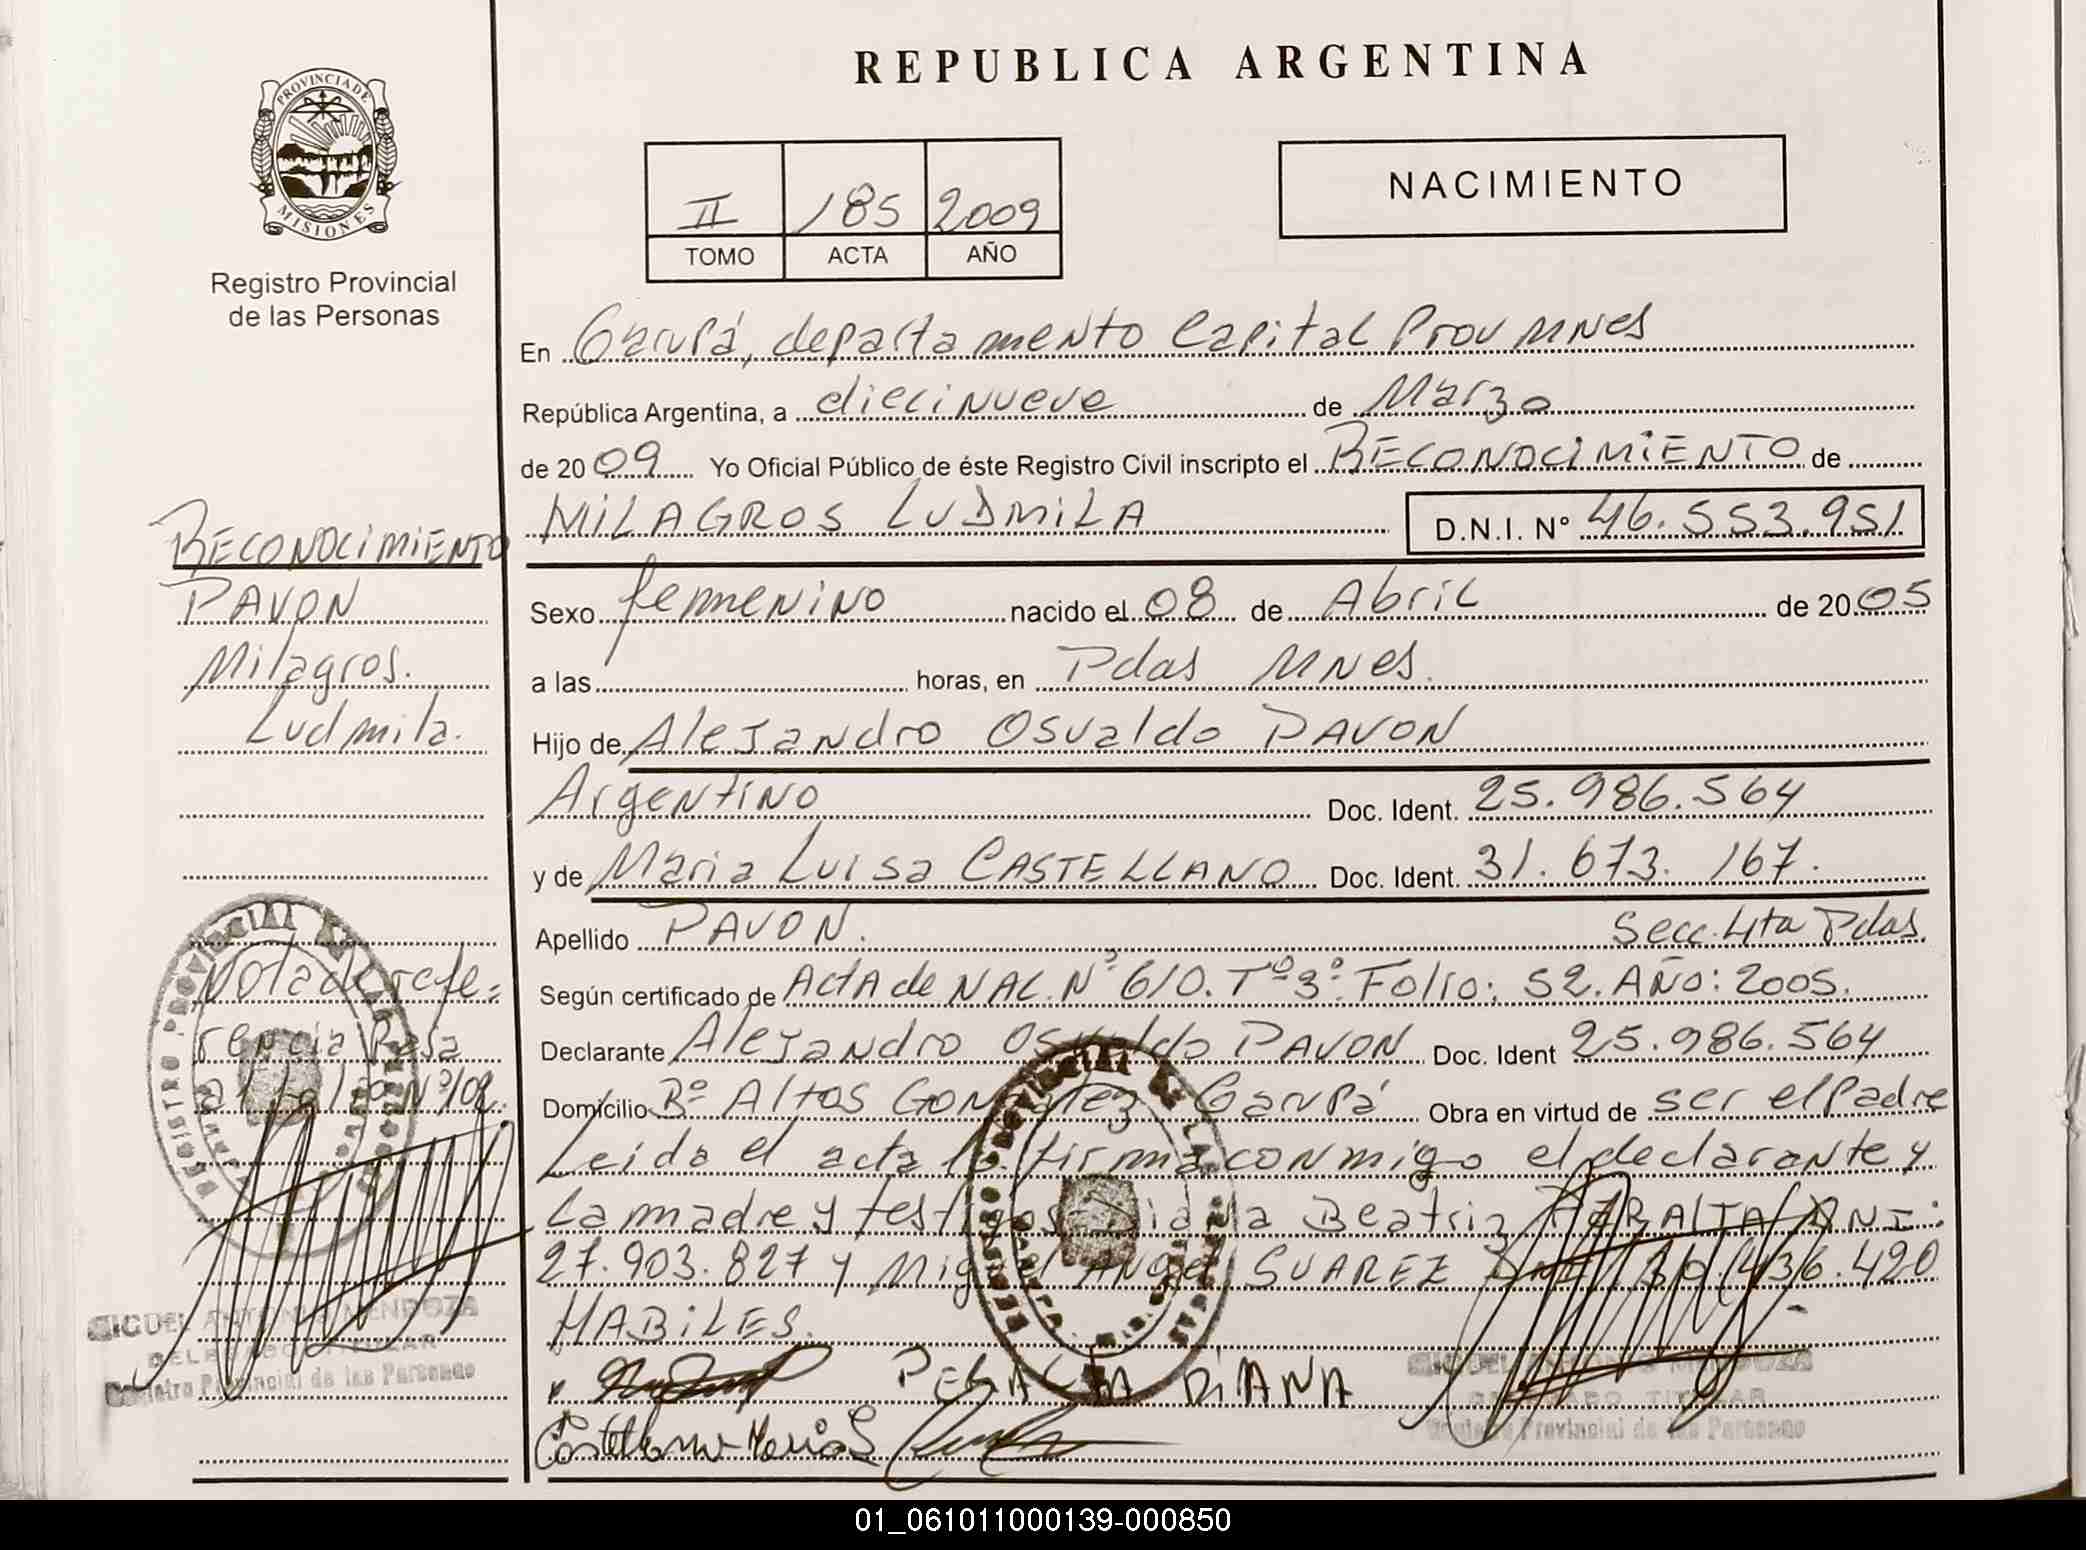 REPUBLICA ARGENTINA
PROVINCIA DE
MISIONES
Registro Provincial
de las Personas
II 185 2009
TOMO ACTA AÑO
NACIMIENTO
En Garupá, departamento Capital Prov MNes
República Argentina, a diecinueve de Marzo
de 2009 Yo Oficial Público de éste Registro Civil inscripto el RECONOCIMIENTO de
MILAGROS LUDMILA D.N.I. Nº 46.553.951
Sexo femenino nacido el 08 de Abril de 2005
a las horas, en Pdas MNes.
Hijo de Alejandro Osvaldo PAVON
Argentino Doc. Ident. 25.986.564
y de Maria Luisa CASTELLANO Doc. Ident. 31.673.167.
Apellido PAVON. Secc. 4ta Pdas.
Según certificado de Acta de NAC. Nº 610. Tº 3º. Folio: 52. AÑO: 2005.
Declarante Alejandro Osvaldo PAVON Doc. Ident 25.986.564
Domicilio Bº Altos Gonzalez Garupá Obra en virtud de ser el Padre
Leida el acta la firma conmigo el declarante y
la madre y testigos Diana Beatriz PERALTA DNI:
27.903.827 y Miguel Angel SUAREZ DNI 30.436.420
HABILES.
PERALTA DIANA
Castellano Maria L
RECONOCIMIENTO
PAVON
Milagros.
Ludmila.
Nota de refe=
rencia Pasa
al folio Nº 102.
MIGUEL ANTONIO MENDOZA
DELEGADO TITULAR
Registro Provincial de las Personas
MIGUEL ANTONIO MENDOZA
DELEGADO TITULAR
Registro Provincial de las Personas
01_061011000139-000850